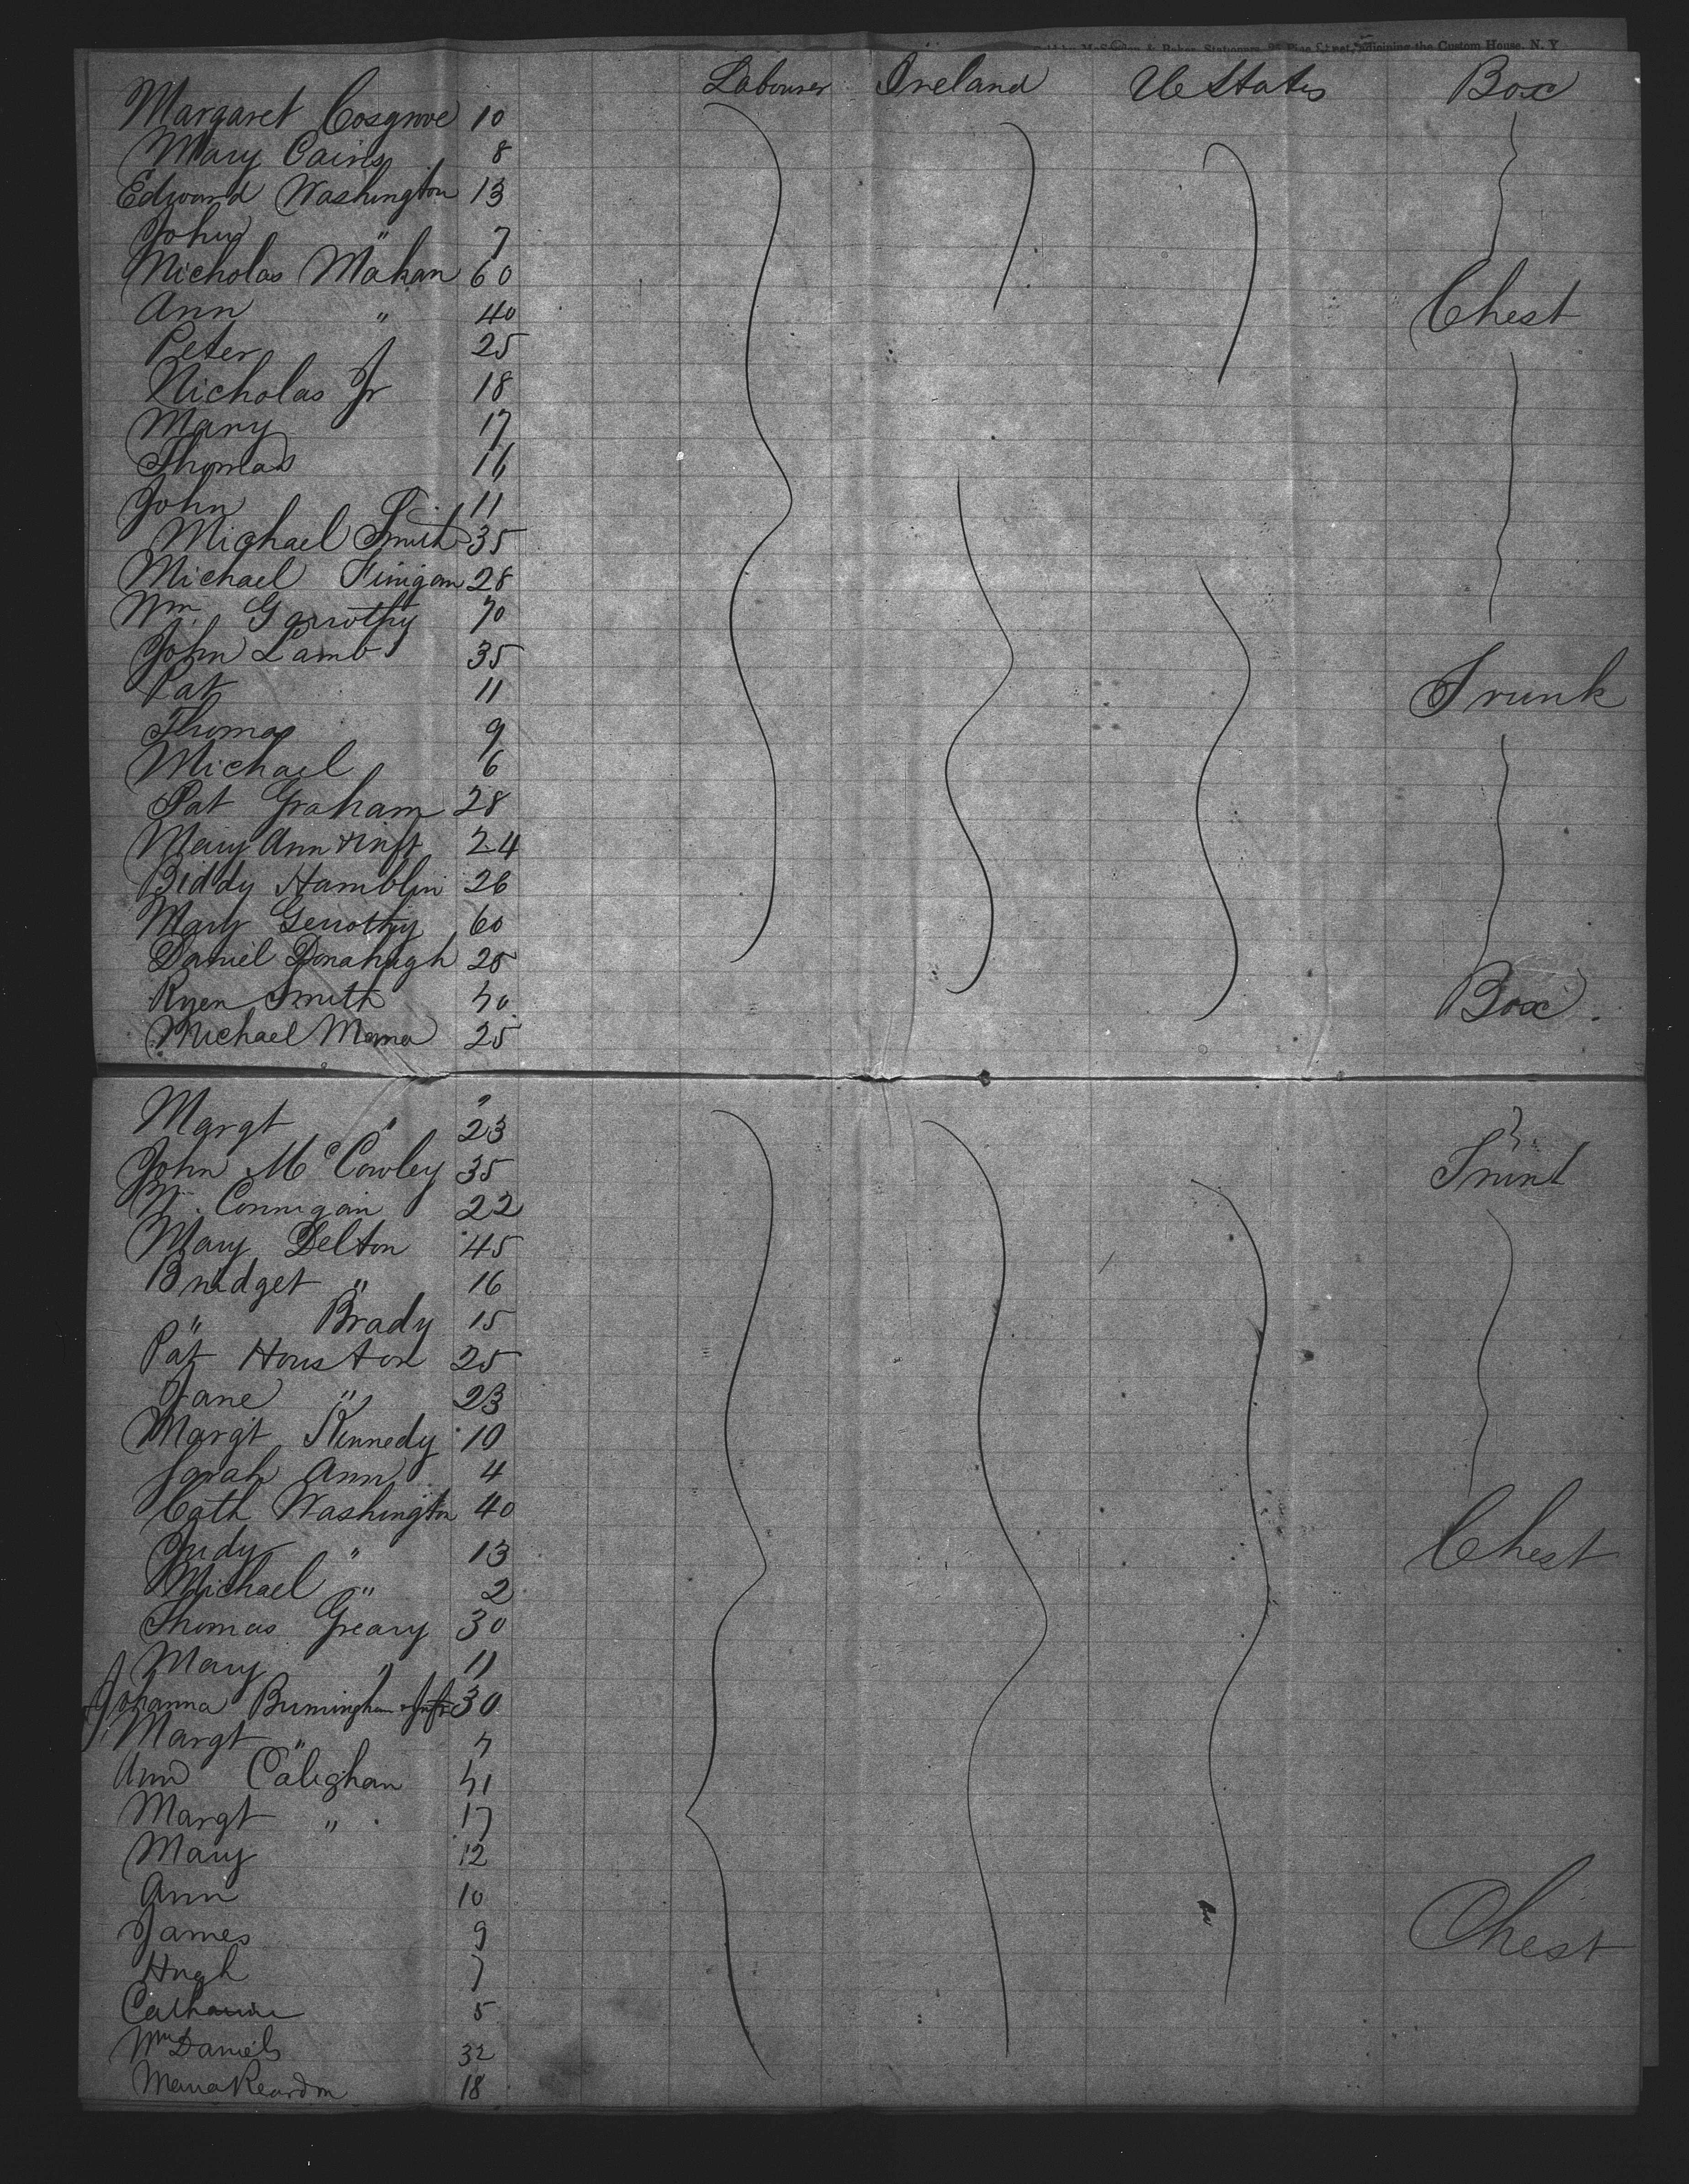 Stationers, Pine Street, adjoining the Custom House, N. Y
Labourer Ireland U States Box
Margaret Cosgrove 10
Mary Cairns 8
Edward Washington 13
John " 7
Nicholas Mahan 60
Ann " 40 Chest
Peter 25
Nicholas Jr 18
Mary 17
Thomas 16
John 11
Michael Smith 35
Michael Finigan 28
Wm. Garrothy 70
John Lamb 35
Pat 11 Trunk
Thomas 9
Michael 6
Pat Graham 28
Mary Ann & inft 24
Biddy Hamblin 26
Mary Gerrothy 60
Daniel Donahugh 25
Ryen Smith 40 Box
Michael Mama 25
Margt " 23
John McCowley 35 Trunk
Connigan 22
Mary Delton 45
Bridget " 16
" Brady 15
Pat Houston 25
Jane " 23
Margt Kennedy 10
Sarah Ann 4
Cath Washington 40
Judy " 13 Chest
Michael " 2
Thomas Greary 30
Mary " 11
Johanna Burmingham & Inft 30
Margt " 7
Ann Calighan 41
Margt " 17
Mary 12
Ann 10
James 9 Chest
Hugh 7
Catharine 5
Wm Daniels 32
Maria Reardon 18